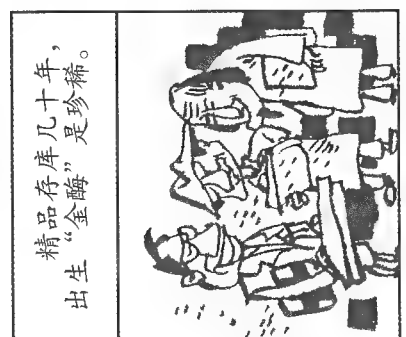 精品存库几十年，
出生“金酶”是珍稀。